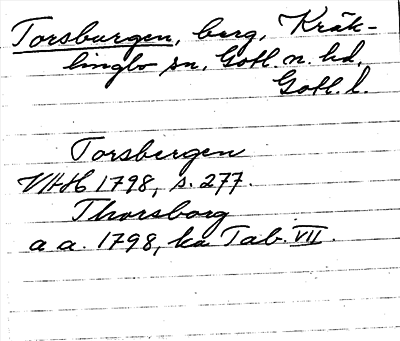 Torsburgen, berg, Kräk-
lingbo sn, Gotl. n. hd,
Gotl. l.
Torsbergen
VHH 1798, s. 277.
Thorsborg
a a. 1798, ka Tab. VII.